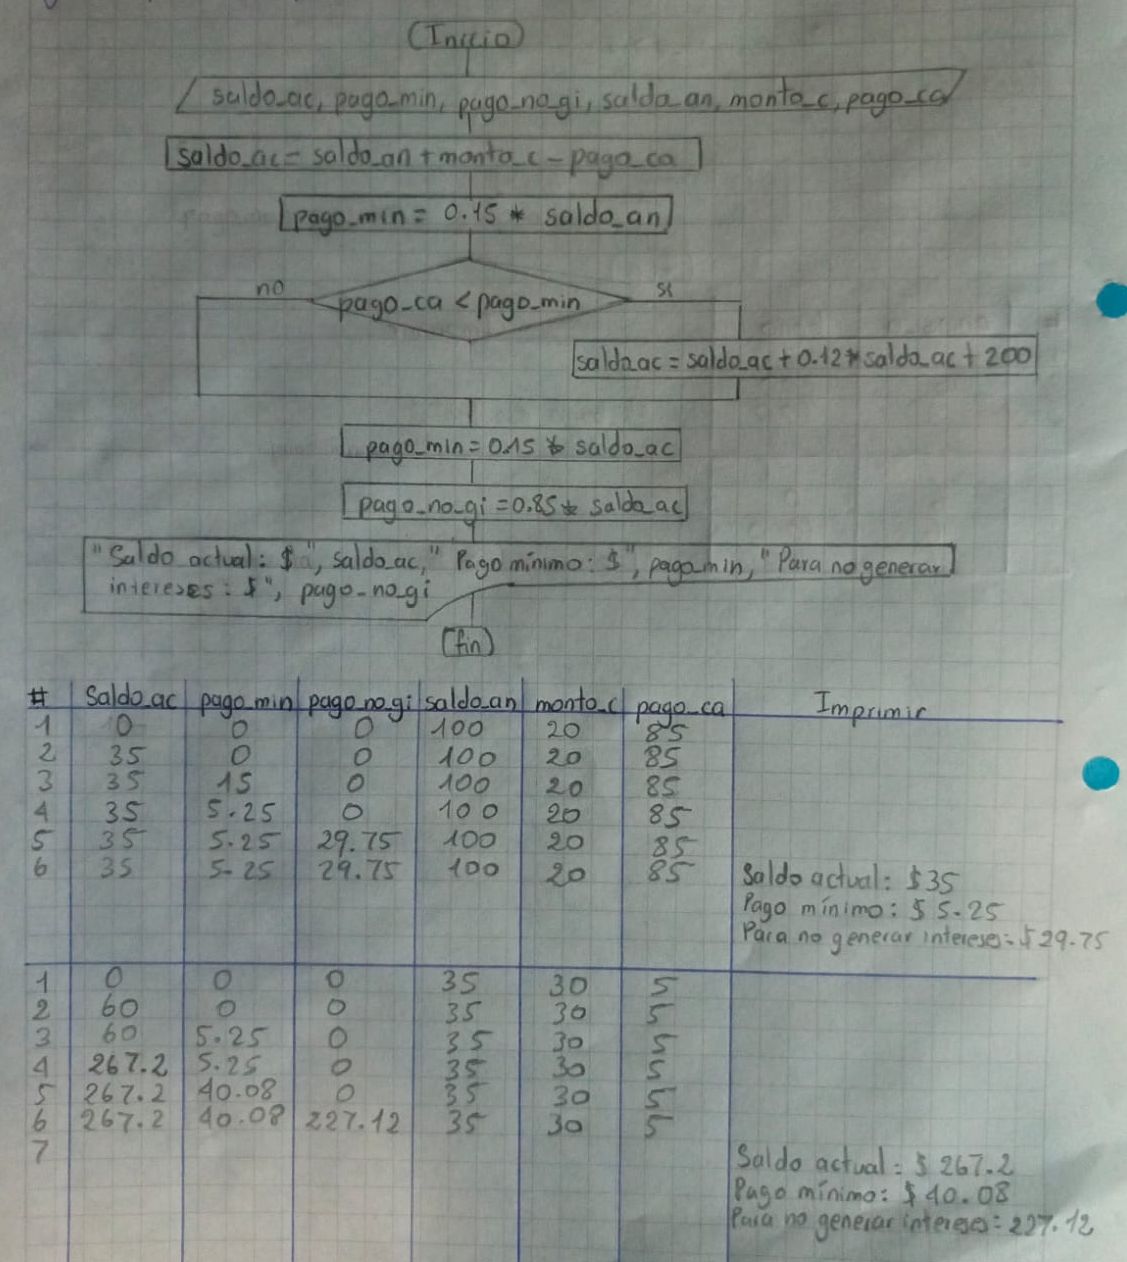 (Inicio)
saldo_ac, pago_min, pago_no_gi, saldo_an, monto_c, pago_ca
saldo_ac = saldo_an + monto_c - pago_ca
pago_min = 0.15 * saldo_an
no pago_ca < pago_min si
saldo_ac = saldo_ac + 0.12 * saldo_ac + 200
pago_min = 0.15 * saldo_ac
pago_no_gi = 0.85 * saldo_ac
"Saldo actual: $", saldo_ac, "Pago mínimo: $", pago_min, "Para no generar
intereses: $", pago_no_gi
(fin)
# Saldo_ac pago_min pago_no_gi saldo_an monto_c pago_ca Imprimir
1 0 0 0 100 20 85
2 35 0 0 100 20 85
3 35 15 0 100 20 85
4 35 5.25 0 100 20 85
5 35 5.25 29.75 100 20 85
6 35 5.25 29.75 100 20 85 Saldo actual: $35
Pago mínimo: $5.25
Para no generar intereses: $29.75
1 0 0 0 35 30 5
2 60 0 0 35 30 5
3 60 5.25 0 35 30 5
4 267.2 5.25 0 35 30 5
5 267.2 40.08 0 35 30 5
6 267.2 40.08 227.12 35 30 5
7
Saldo actual: $267.2
Pago mínimo: $40.08
Para no generar intereses: 227.12